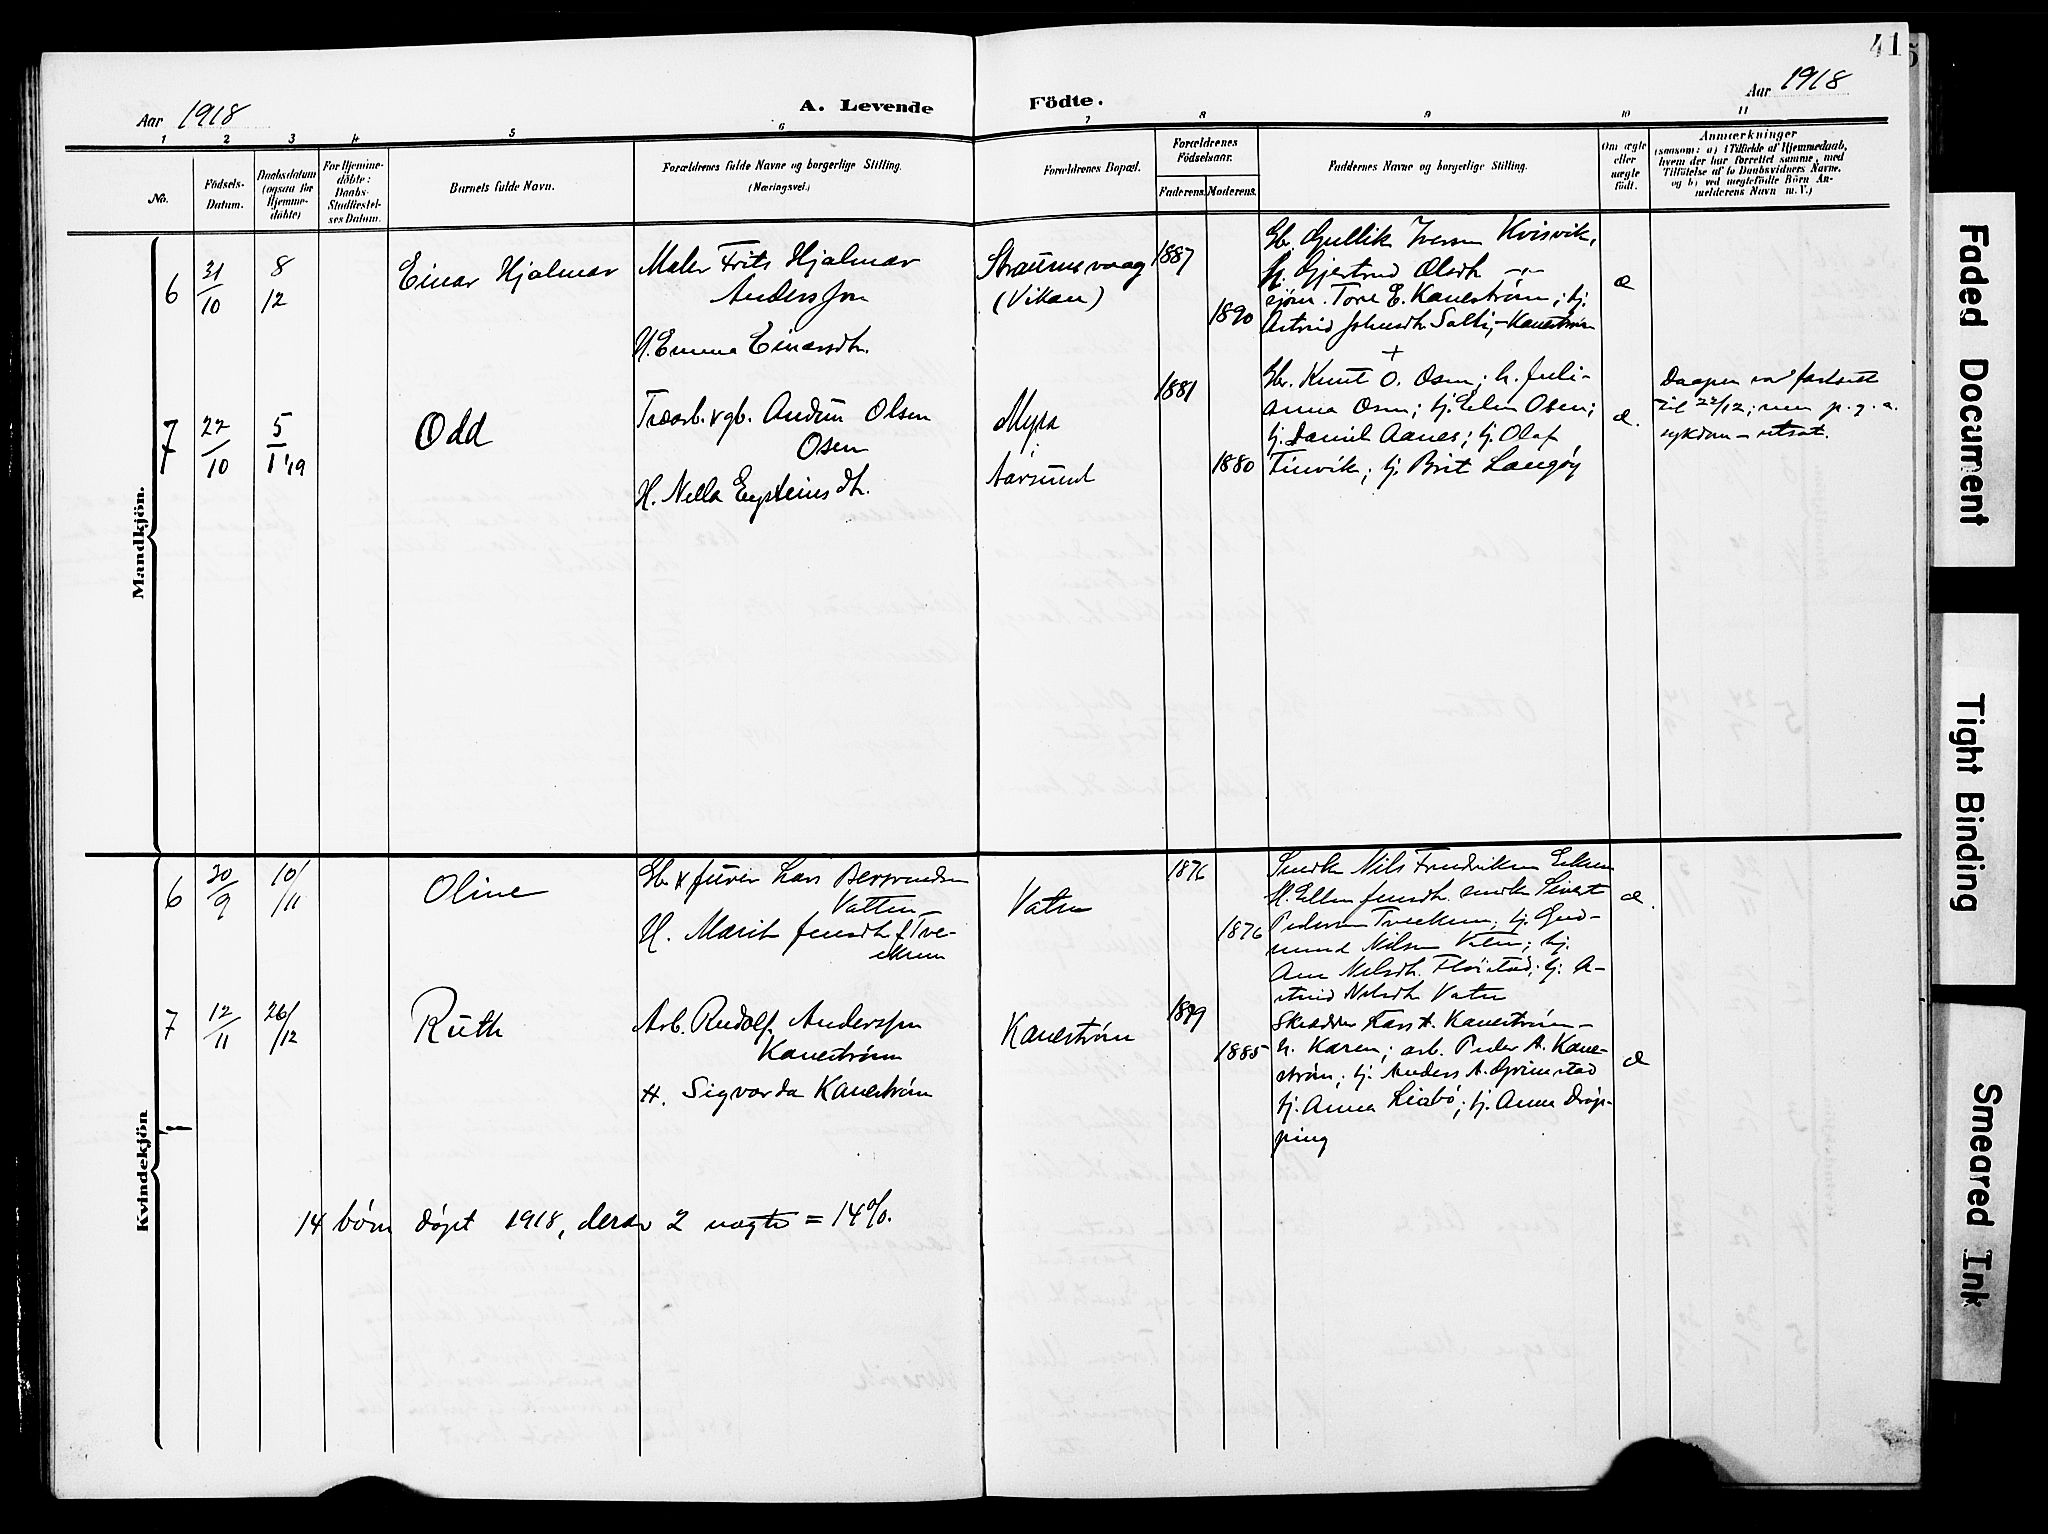 41
Aar 1918
A. Levende Födte.
Aar 1918
1 2 3 4 5 6 7 8 9 10 11
No.
Födsels-
Datum.
Daabsdatum
(ogsaa for
Hjemme-
döbte)
For Hjemme-
döbte:
Daabs-
Stadfæstel-
ses Datum.
Barnets fulde Navn.
Forældrenes fulde Navne og borgerlige Stilling.
(Næringsvei.)
Forældrenes Bopæl.
Forældrenes
Födselsaar.
Faderens.
Moderens.
Faddernes Navne og borgerlige Stilling.
Om ægte
eller
uægte
födt.
Anmærkninger
(saasom: a) i Tilfælde af Hjemmedaab,
hvem der har forrettet samme, med
Tilföielse af to Daabsvidners Navne,
og b) ved uægtefödte Börn An-
melderens Navn m. V.)
Mandkjön.
6
31/10
8/12
Einar Hjalmar
Maler Frits Hjalmar
Andersson
H. Emma Einarsdtr.
Straumsvaag
(Vikan)
1887
1890
Gb. Gullik Iversen Kvisvik,
h. Gjertrud Olsdtr —"—
sjøm. Tore E. Kanestrøm; tj.
Astrid Johnsdtr. — Kanestrøm
æ
7
22/10
5/1 '19
Odd
Træarb. & gb. Olsen
Osen
H. Nella Eysteinsdtr.
Myra
Aarsund
1881
1880
+
Gbr. Knut O. Osen; h. Juli-
anna Osen; tj. Osen;
tj. Daniel Aanes; tj. Olaf
Tinvik; tj. Brit Langøy
æ.
Daapen var fastsat
til 22/12; men p. g. a.
sykdom — utsat.
Kvindekjön
6
30/9
10/11
Oline
Gb & furer Lars
Vatten
H. Marit Jensdtr f. Tve-
ekrem
Vatn
1876
1876
Smdk Nils Fredriksen
H. Ellen Jensdtr. smdk Sivert
Pedersen Tveekrem; tj. Gud-
mund Nilsen Vatn; tj.
Ane Nilsdtr. Fløistad; tj. A-
strid Nilsdtr Vatn
æ.
7
12/11
26/12
Ruth
Arb. Rudolf Anderssen
Kanestrøm
H. Sigvarda Kanestrøm
Kanestrøm
1889
1885
Skrædder Lars A. Kanestrøm —
h. Karen; arb. Peder A. Kane-
strøm; tj. Anders A. Grimstad
tj. Anna Liabø; tj. Anna Drøp-
ping
æ
14 børn døpt 1918, derav 2 uægte = 14%.
Faded Document
Tight Binding
Smeared Ink